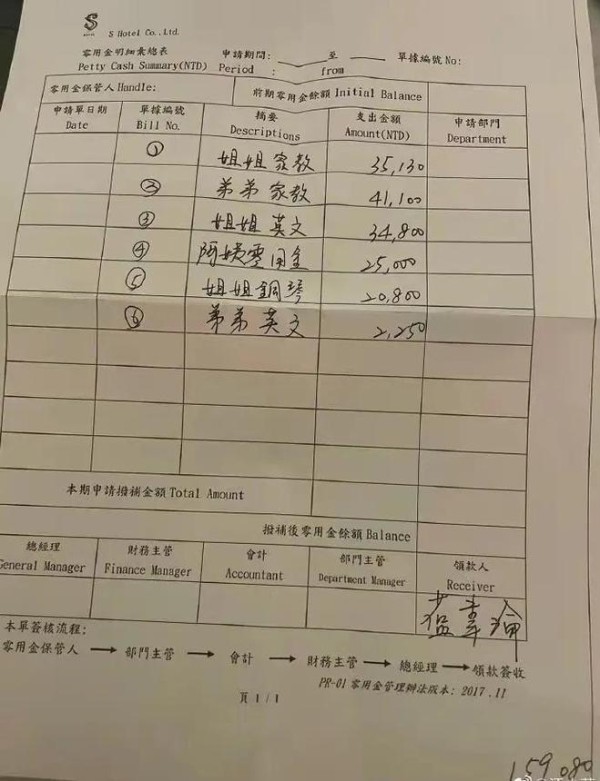 S
S Hotel Co., Ltd.
零用金明細彙總表 申請期間: 至 單據編號No:
Petty Cash Summary(NTD) Period : from
零用金保管人Handle: 前期零用金餘額 Initial Balance
申請單日期 單據編號 摘要 支出金額 申請部門
Date Bill No. Descriptions Amount(NTD) Department
① 姐姐家教 35,130
② 弟弟家教 41,100
③ 姐姐英文 34,800
④ 阿姨零用金 25,000
⑤ 姐姐鋼琴 20,800
⑥ 弟弟英文 2,250
本期申請撥補金額 Total Amount
撥補後零用金餘額 Balance
總經理 財務主管 會計 部門主管 領款人
General Manager Finance Manager Accountant Department Manager Receiver
本單簽核流程:
零用金保管人 → 部門主管 → 會計 → 財務主管 → 總經理 → 領款簽收
PR-01 零用金管理辦法版本: 2017.11
頁 1 / 1
159,080